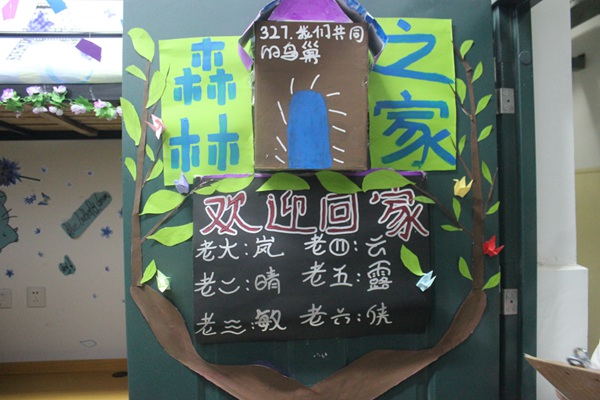 327.我们共同
的鸟巢
森林
之家
欢迎回家
老大:岚 老四:云
老二:晴 老五:露
老三:敏 老六:侠